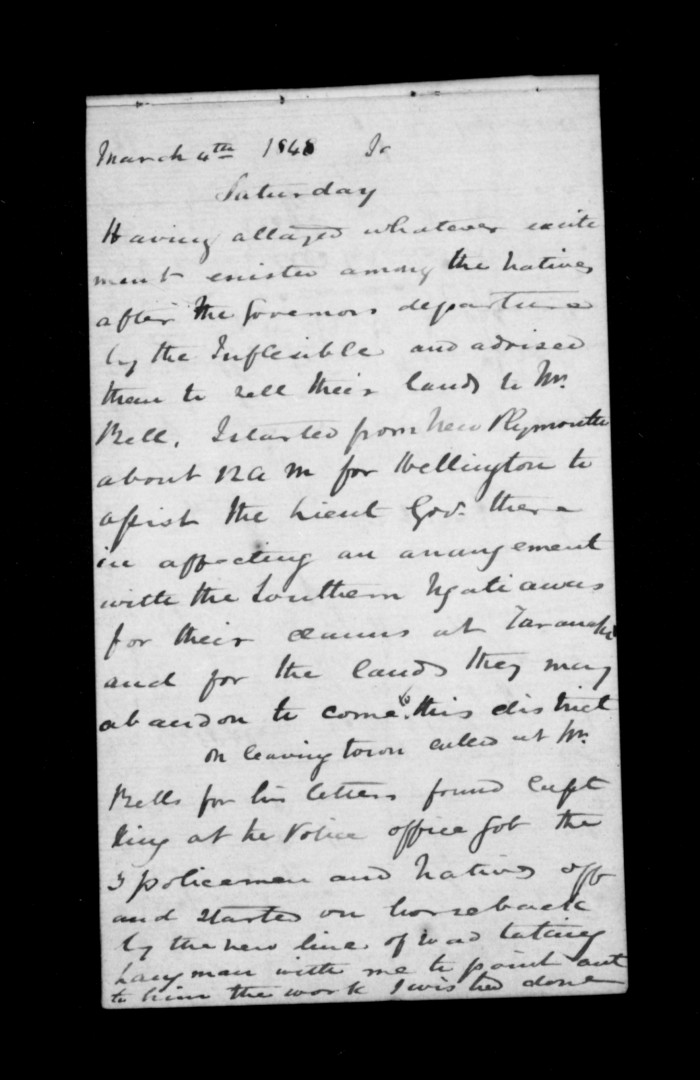 March 4th 1848 Jo
Saturday
Having allayed whatever excite
ment existed among the natives
after the Governors departure
by the Inflexible and advised
them to sell their lands to Mr.
Bell, I started from New Plymouth
about 12 A M for Wellington to
assist the Lieut Govr. there
in affecting an arrangement
with the Southern Ngatiawas
for their claims at Taranaki
and for the lands they may
abandon to come to this district
On leaving town called at Mr.
Bells for his letters found Capt
King at the Police office Got the
3 policemen and Natives off
and started on horseback
by the new line of road taking
Langman with me to point out
to him the work I wished done